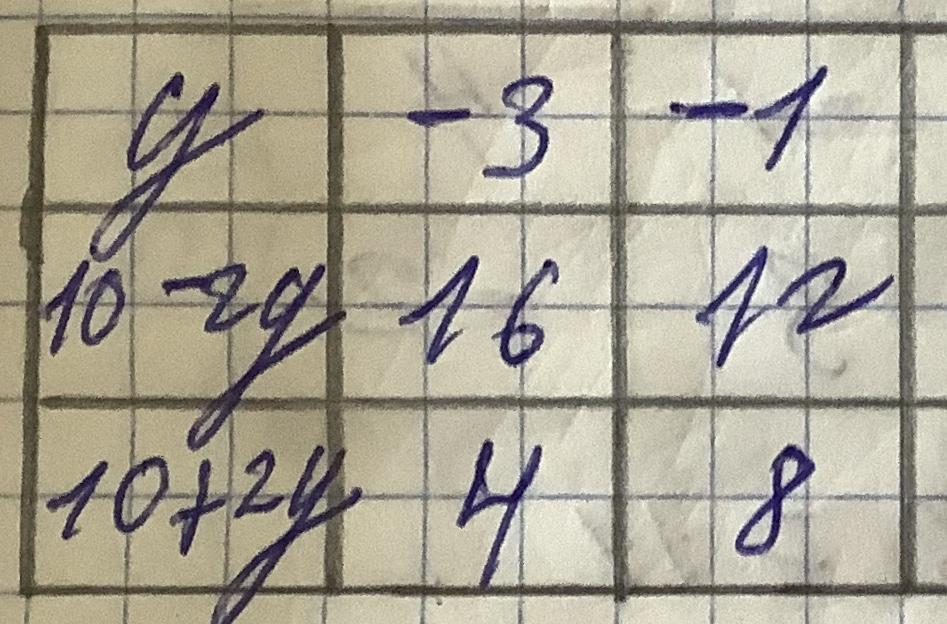 y -3 -1
10-2y 16 12
10+2y 4 8